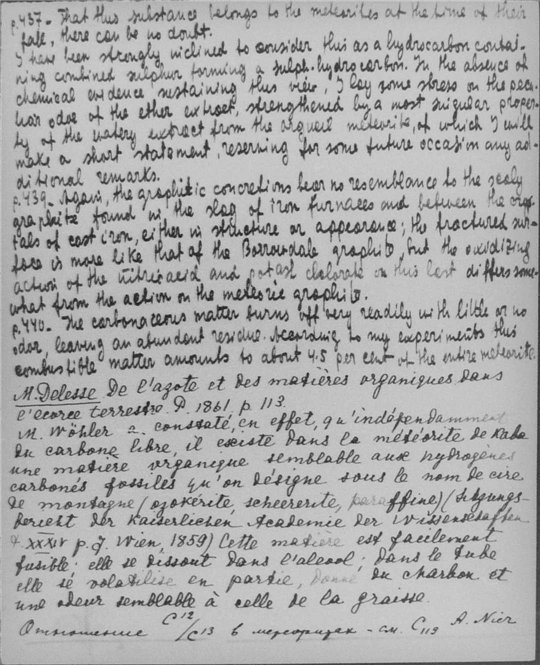 p.437 - That this substance belongs to the meteorites at the time of their
fall, there can be no doubt.
I have been strongly inclined to consider this as a hydrocarbon contai-
ning combined sulphur forming a sulph-hydrocarbon. In the absence of
chemical evidence sustaining this view, I lay some stress on the pecu-
liar odor of the ether extract, strengthened by a most singular proper-
ty of the watery extract from the orgueil meteorite, of which I will
make a short statement, reserving for some future occasion any ad-
ditional remarks.
p.439 - Again, the graphitic concretions bear no resemblance to the scaly
graphite found in the slag of iron furnaces and between the crys-
tals of cast iron, either in structure or appearance; the fractured sur-
face is more like that of the Borrowdale graphite, but the oxidizing
action of the nitric acid and potash chlorate on this last differs some-
what from the action on the meteoric graphite.
p.440 - The carbonaceous matter burns off very readily with little or no
odor, leaving an abundent residue. According to my experiments this
combustible matter amounts to about 4.5 per cent of the entire meteorite.
M. Delesse De l'azote et des matières organiques dans
l'ecorce terrestre. P. 1861, p. 113.
M. Wöhler a constaté, en effet, qu'indépendamment
du carbone libre, il existe dans la météorite de Kaba
une matière organique semblable aux hydrogènes
carbonés fossiles qu'on désigne sous le nom de cire
de montagne (ozokérite, scheererite, paraffine) (Sitzungs-
bericht der Kaiserlichen Academie der Wissenschaften
t XXXIV p. 7. Wien, 1859) Cette matière est facilement
fusible: elle se dissout dans l'alcool; dans le tube
elle se volatilise en partie, donne du charbon et
une odeur semblable à celle de la graisse.
Отношение C12/C13 в метеоритах - см. C113 A. Nier